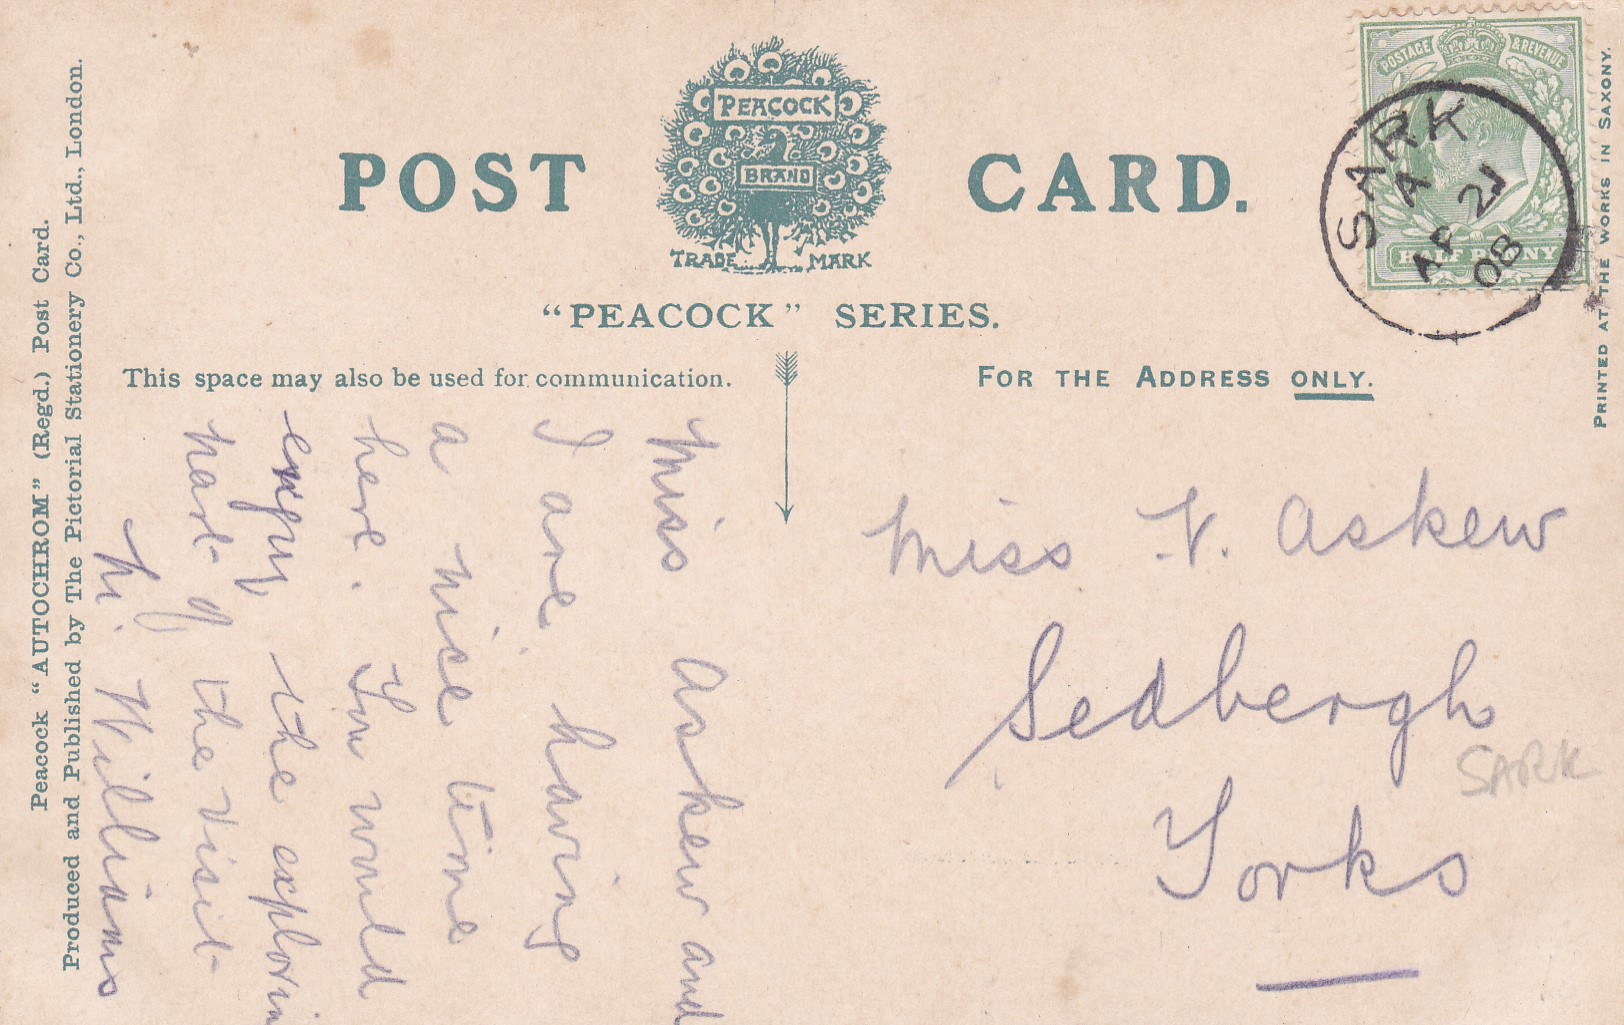 POST CARD.
PEACOCK
BRAND
TRADE MARK
"PEACOCK" SERIES.
This space may also be used for communication.
FOR THE ADDRESS ONLY.
POSTAGE & REVENUE
HALF PENNY
SARK
A
AP 21
08
PRINTED AT THE WORKS IN SAXONY.
Peacock "AUTOCHROM" (Regd.) Post Card.
Produced and Published by The Pictorial Stationery Co., Ltd., London.
Miss Askew and
I are having
a nice time
here. You would
enjoy the explorin
part of the visit
Williams
Miss Askew
Sedbergh
Yorks
SARK